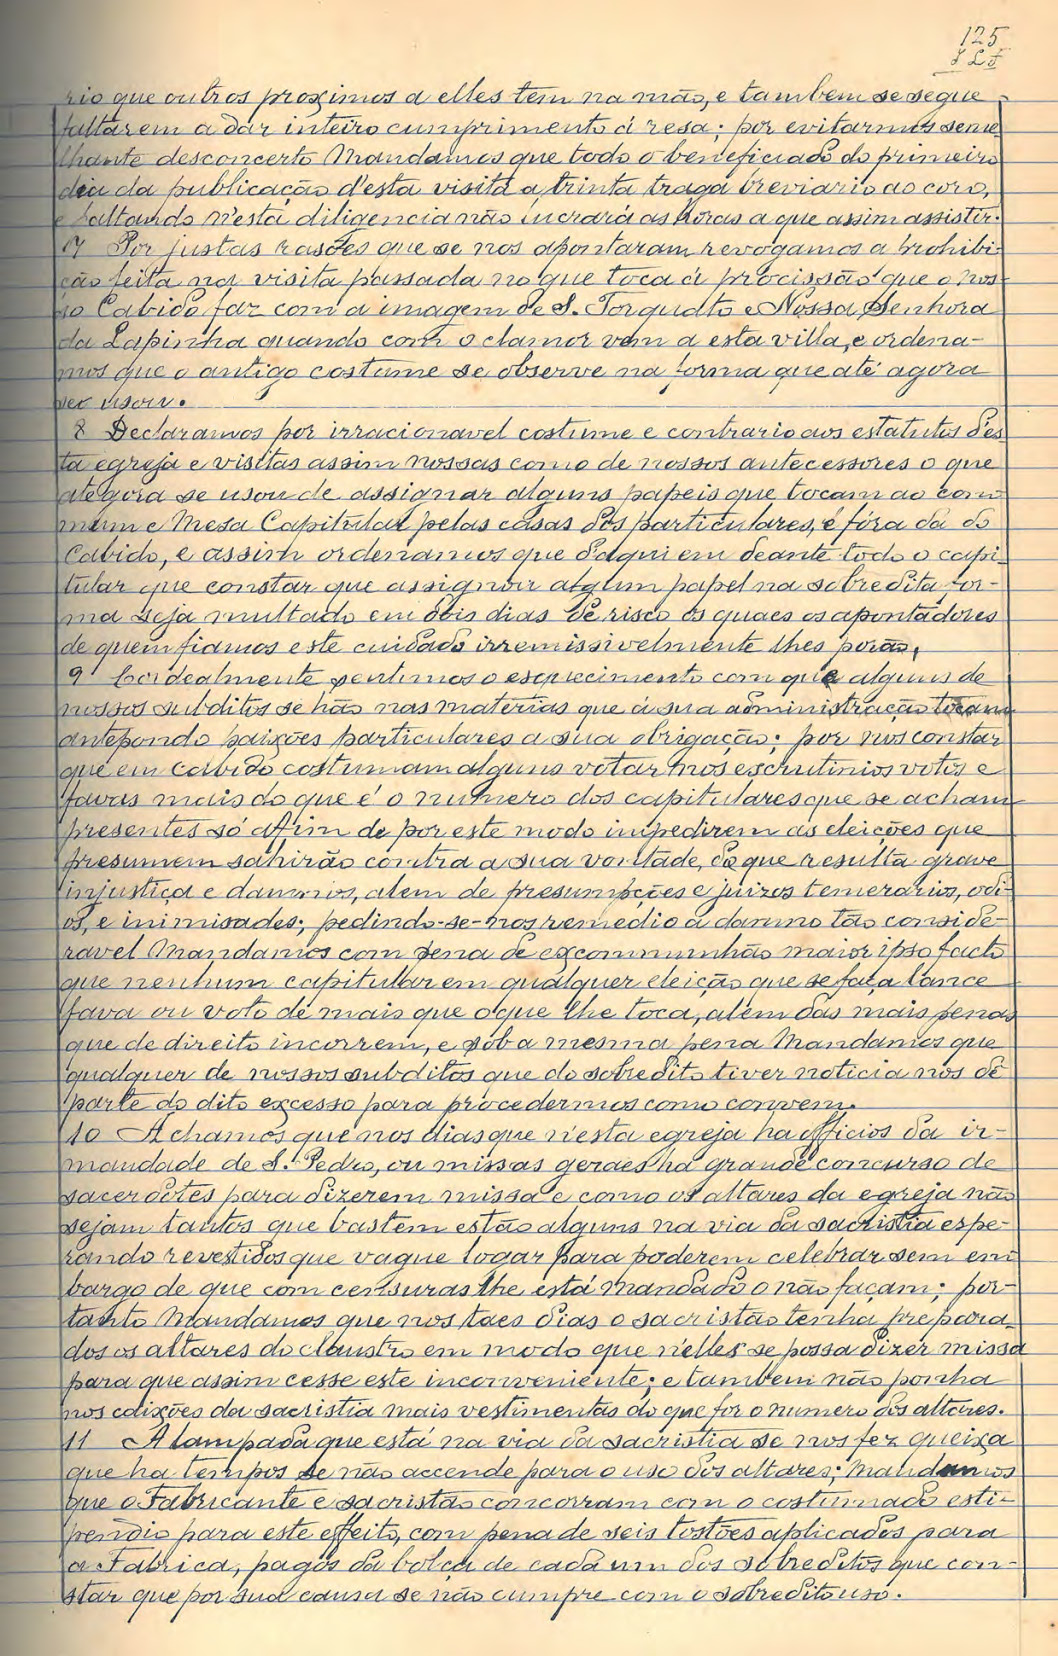 125
rio que outros proximos a elles tem na mão, e tambem se segue
faltarem a dar inteiro cumprimento á resa; por evitarmos seme-
lhante desconcerto Mandamos que todo o beneficiado do primeiro
dia da publicação d'esta visita a trinta traga breviario ao coro,
e faltando n'esta diligencia não lucrará as horas a que assim assistir.
7 Por justas rasões que se nos apontaram revogamos a prohibi-
ção feita na visita passada no que toca á procissão que o nos-
so Cabido faz com a imagem de S. Torquato e Nossa Senhora
da Lapinha quando com o clamor vem a esta villa, e ordena-
mos que o antigo costume se observe na forma que até agora
se usou.
8 Declaramos por irracionavel costume e contrario aos estatutos d'es-
ta egreja e visitas assim nossas como de nossos antecessores o que
atégora se usou de assignar alguns papeis que tocam ao com-
mum e Mesa Capitular pelas casas dos particulares, e fóra da do
Cabido, e assim ordenamos que d'aqui em deante todo o capi-
tular que constar que assignou algum papel na sobredita for-
ma seja multado em dois dias de risco os quaes os apontadores
de quem fiamos este cuidado irremissivelmente lhes porão.
9 Cordealmente sentimos o esquecimento com que alguns de
nossos subditos se hão nas materias que á sua administração tocam
antepondo paixões particulares a sua obrigação; por nos constar
que em Cabido costumam alguns votar nos escrutinios votos e
favas mais do que é o numero dos capitulares que se acham
presentes só afim de por este modo impedirem as eleições que
presumem sahirão contra a sua vontade, do que resulta grave
injustiça e damnos, alem de presumpções e juizos temerarios, odi-
os, e inimisades; pedindo-se-nos remedio a damno tão conside-
ravel Mandamos com pena de excommunhão maior ipso facto
que nenhum capitular em qualquer eleição que se faça lance
fava ou voto de mais que o que lhe toca, alem das mais penas
que de direito incorrem, e sob a mesma pena Mandamos que
qualquer de nossos subditos que do sobredito tiver noticia nos dê
parte do dito excesso para procedermos como convem.
10 Achamos que nos dias que n'esta egreja ha officios da ir-
mandade de S. Pedro, ou missas geraes ha grande concurso de
sacerdotes para dizerem missa e como os altares da egreja não
sejam tantos que bastem estão alguns na via da sacristia espe-
rando revestidos que vague logar para poderem celebrar sem em-
bargo de que com censuras lhe está mandado o não façam; por-
tanto Mandamos que nos taes dias o sacristão tenha prepara-
dos os altares do claustro em modo que n'elles se possa dizer missa
para que assim cesse este inconveniente; e tambem não ponha
nos caixões da sacristia mais vestimentas do que for o numero dos altares.
11 A lampada que está na via da sacristia se nos fez queixa
que ha tempos se não accende para o uso dos altares; Mandamos
que o Fabricante e sacristão concorram com o costumado esti-
pendio para este effeito, com pena de seis tostões aplicados para
a Fabrica, pagos da bolça de cada um dos sobreditos que con-
star que por sua causa se não cumpre com o sobredito uso.